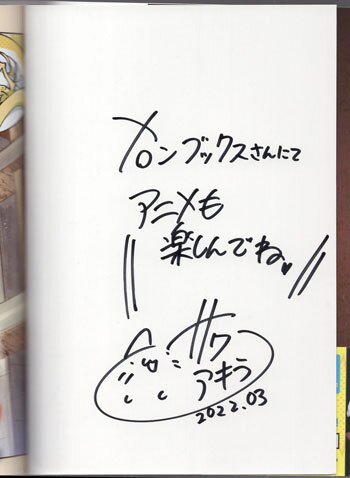 メロンブックスさんにて
アニメも
楽しんでね♥
サワ
アキラ
2022.03